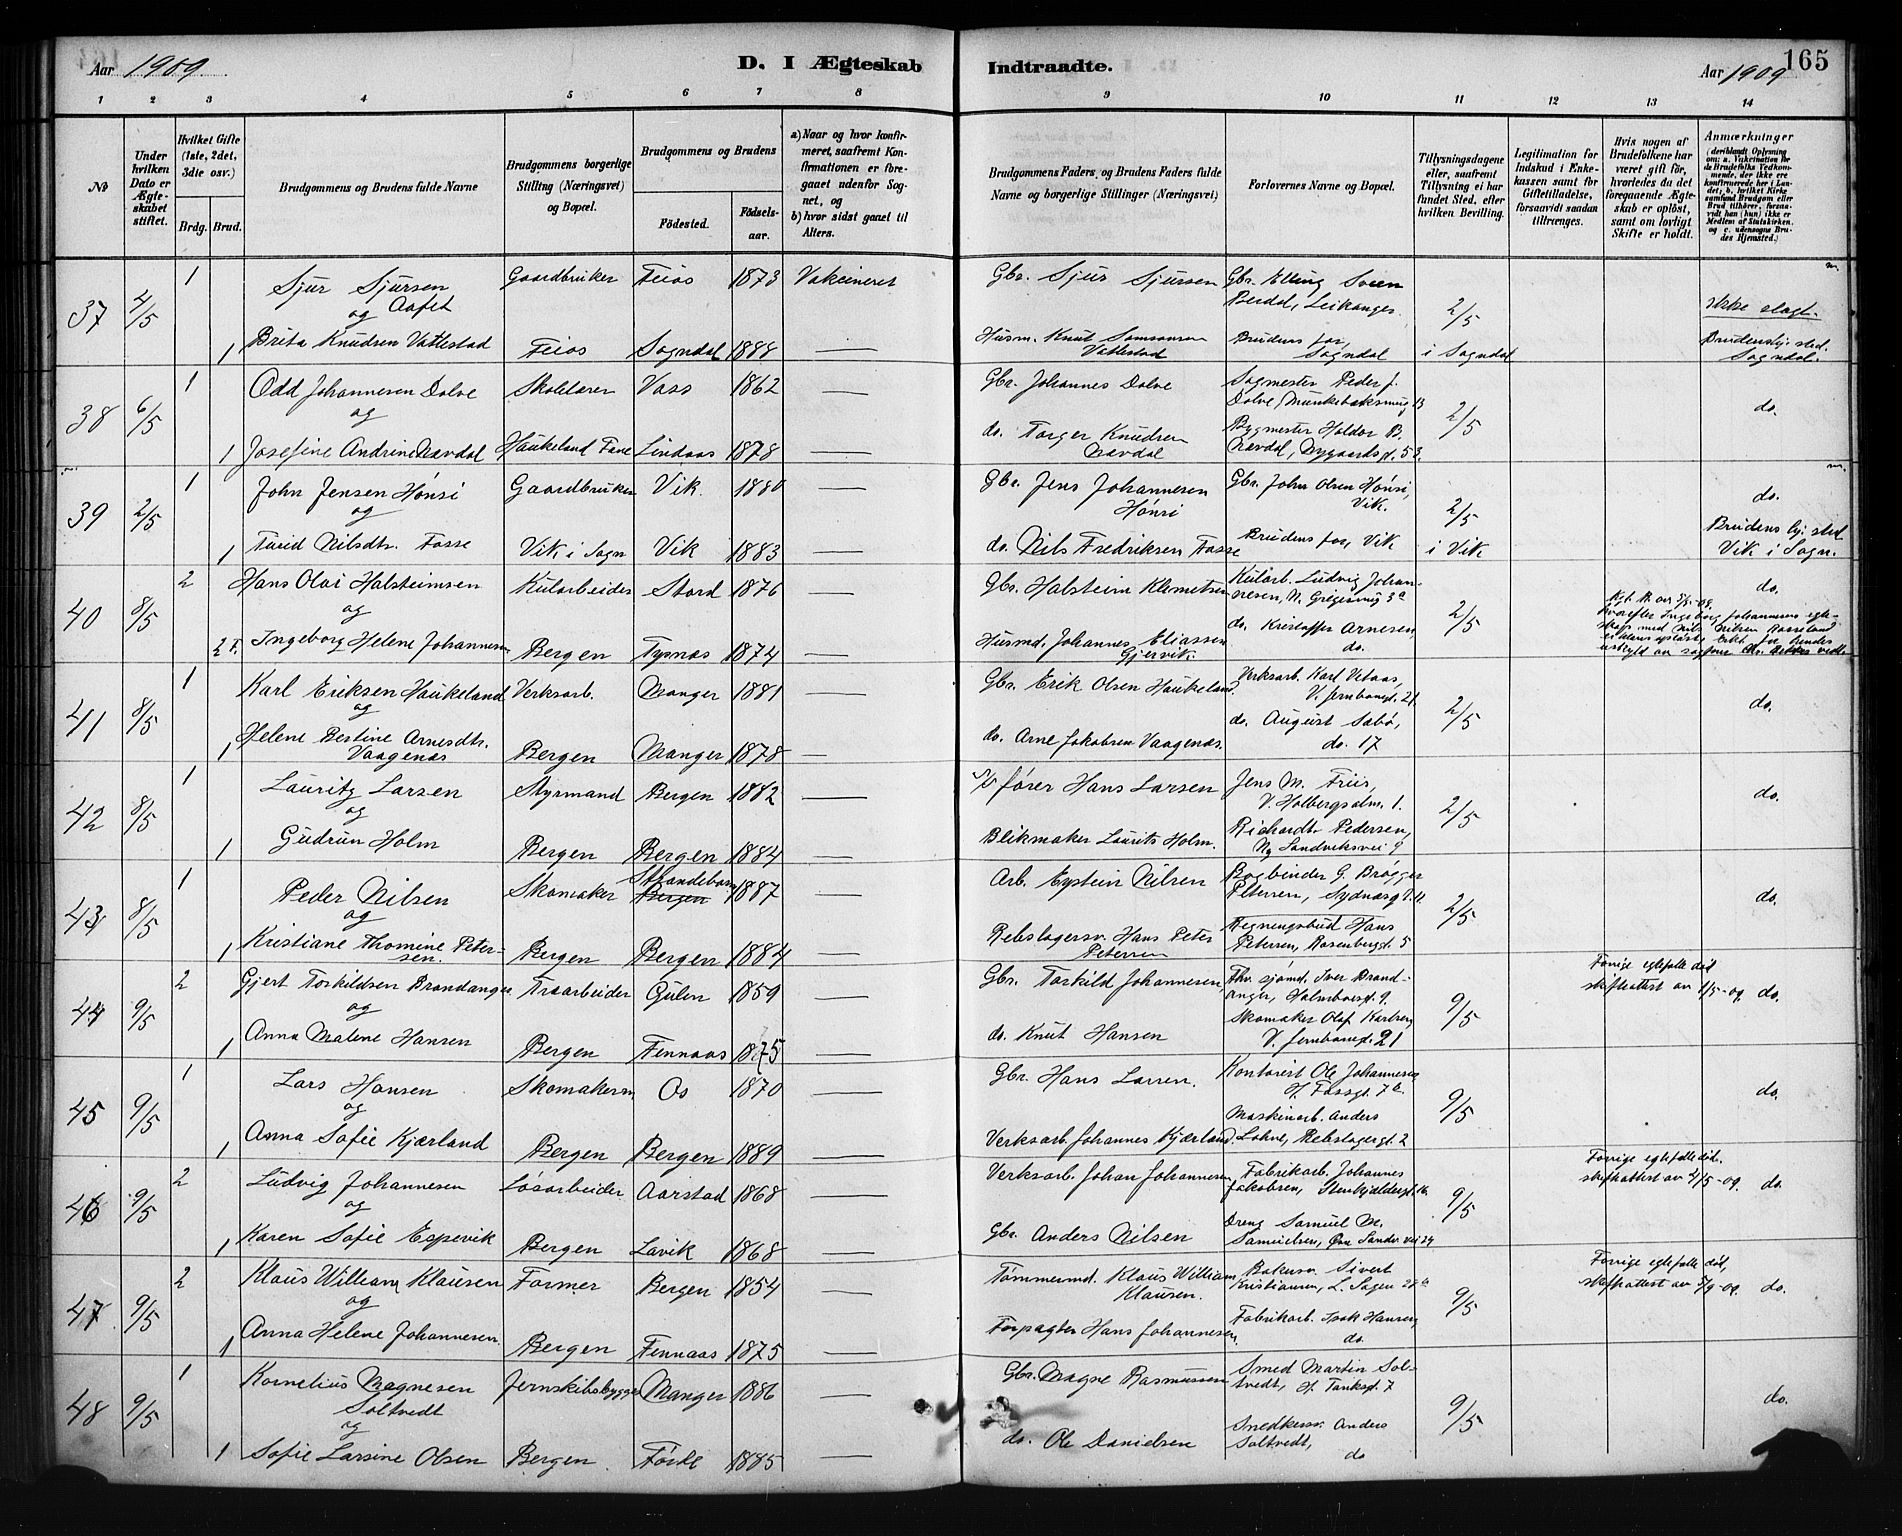 Aar 1909. D. I Ægteskab Indtraadte. Aar 1909 165
1 2 3 4 5 6 7 8 9 10 11 12 13 14
No
Under hvilken Dato er Ægteskabet stiftet.
Hvilket Gifte (1ste, 2det, 3die osv.)
Brdg. Brud.
Brudgommens og Brudens fulde Navne
Brudgommens borgerlige Stilling (Næringsvei) og Bopæl.
Brudgommens og Brudens
Födested. Födselsaar.
a) Naar og hvor konfirmeret, saafremt Konfirmationen er foregaaet udenfor Sognet, og
b) hvor sidst gaaet til Alters.
Brudgommens Faders, og Brudens Faders fulde Navne og borgerlige Stillinger (Næringsvei)
Forlovernes Navne og Bopæl.
Tillysningsdagene eller, saafremt Tillysning ei har fundet Sted, efter hvilken Bevilling.
Legitimation for Indskud i Enkekassen samt for Giftetilladelse, forsaavidt saadan tiltrænges.
Hvis nogen af Brudefolkene har været gift för, hvorledes da det foregaaende Ægteskab er oplöst, samt om lovligt Skifte er holdt.
Anmærkninger
(deriblandt Oplysning om: a. Vakcination for de Brudefolks Vedkommende, der ikke ere konfirmerede her i Landet; b. hvilket Kirkesamfund Brudgom eller Brud tilhörer, forsaavidt han (hun) ikke er Medlem af Statskirken, og c. udensogns Brudes Hjemsted.)
37 4/5 1 Sjur Sjursen Gaardbruker Feios 1873 Vakcineret Gbr. Sjur Sjursen Gbr. Elling Svein
og Aafet Leikanger. 2/5 ikke slegt.
1 Brita Knudsen Vattestad Feios Sogndal 1888 — Husm. Knut Samsonsen Brudens far,
Vattestad Sogndal i Sogndal Sogndal.
38 6/5 1 Odd Johannesen Dolve Skolelærer Voss 1862 — Gbr. Johannes Dolve Sagmester Peder J.
og Dolve, 13 2/5 do.
1 Josefine Andrine Navdal Haukeland Fane Lindaas 1878 — do. Torger Knudsen Bygmester Haldor B.
Navdal Navdal, Nygaardsg.
39 2/5 1 John Jensen Hønsi Gaardbruker Vik. 1880 — Gbr. Jens Johannesen Gbr. John Olsen Hønsi,
og Hønsi Vik. 2/5 do.
1 Turid Nilsdtr. Fosse Vik i Sogn Vik 1883 — do. Nils Fredriksen Fosse Brudens far, Vik i Vik Brudens
Vik i Sogn.
40 8/5 2 Hans Olai Halsteinsen Kularbeider Stord 1876 — Gbr. Halstein Klemetsen Kularb. Ludvig Johannesen, do.
og 2/5
2 Ingeborg Helene Johannesen Bergen Tysnes 1874 — Husmd. Johannes Eliassen do. Kristoffer Arnesen
Gjervik. do.
41 8/5 1 Karl Eriksen Haukeland Verksarb. Manger 1881 — Gbr. Erik Olsen Haukeland Verksarb. Karl Vetaas,
og V. Jernbanegt. 21. 2/5 do.
1 Helene Bertine Arnesdtr. do. August Sæbø,
Vaagenes Bergen Manger 1878 — do. Arne Jakobsen Vaagenes. do. 17
42 8/5 1 Lauritz Larsen Styrmand Bergen 1882 — fører Hans Larsen Jens M. Friis,
og V. Holbergsalm. 1. 2/5 do.
1 Gudrun Holm Bergen Bergen 1884 — Blikmaker Laurits Holm. Richardt Pedersen,
Ny Sandviksvei 9
43 8/5 1 Peder Nilsen Skomaker Strandebarm Bergen 1887 — Arb. Eystein Nilsen Bogbinder G. Brøgger
og Petersen, 2/5 do.
1 Kristiane Thomine Petersen. Bergen Bergen 1884 — Rebslagersv. Hans Peter Regningsbud Hans
Petersen Petersen, Rosenbergt. 5
44 9/5 2 Gjert Torkildsen Brandanger Træarbeider Gulen 1859 — Gbr. Torkild Johannesen, Fhv. sjømd. Iver Brandanger, Forrige egtefælle død.
og Skomaker Olaf Karlsen 9/5 skifteattest av 1/5-09. do.
1 Anna Malene Hansen Bergen Fennaas 1875 — do. Knut Hansen V. Jernbanegt. 21
45 9/5 1 Lars Hansen Skomakersv. Os 1870 — Gbr. Hans Larsen. Kontorist Ole Johannesen
og 9/5 do.
1 Anna Sofie Kjærland Bergen Bergen 1889 — Verksarb. Johannes Kjærland. Maskinarb. Anders
Lohne, Rebslagergt. 2
46 9/5 2 Ludvig Johannesen Løsarbeider Aarstad 1868 — Verksarb. Johan Johannesen Fabrikarb. Johannes Forrige egtefælle død.
og Jakobsen, 9/5 skifteattest av 4/5-09. do.
1 Karen Sofie Espevik Bergen Lavik 1868 — Gbr. Anders Nilsen Dreng Samuel M.
Samuelsen, Øvre Sandv.vei 24
47 9/5 2 Klaus William Klausen Former Bergen 1854 — Tømmermd. Klaus William Bakersv. Sivert Forrige egtefælle død,
og Klausen. Kristiansen, 9/5 do.
1 Anna Helene Johannesen Bergen Fennaas 1875 — Forpagter Hans Johannesen, Fabrikarb. Isak Hansen,
do.
48 9/5 1 Kornelius Magnesen Jernskibsbygger Manger 1886 — Gbr. Magne Rasmussen Smed Martin Soltvedt,
Soltvedt 9/5 do.
og
1 Sofie Larsine Olsen Bergen. Førde 1885 — do. Ole Danielsen Snedkersv. Anders
Soltvedt,
do